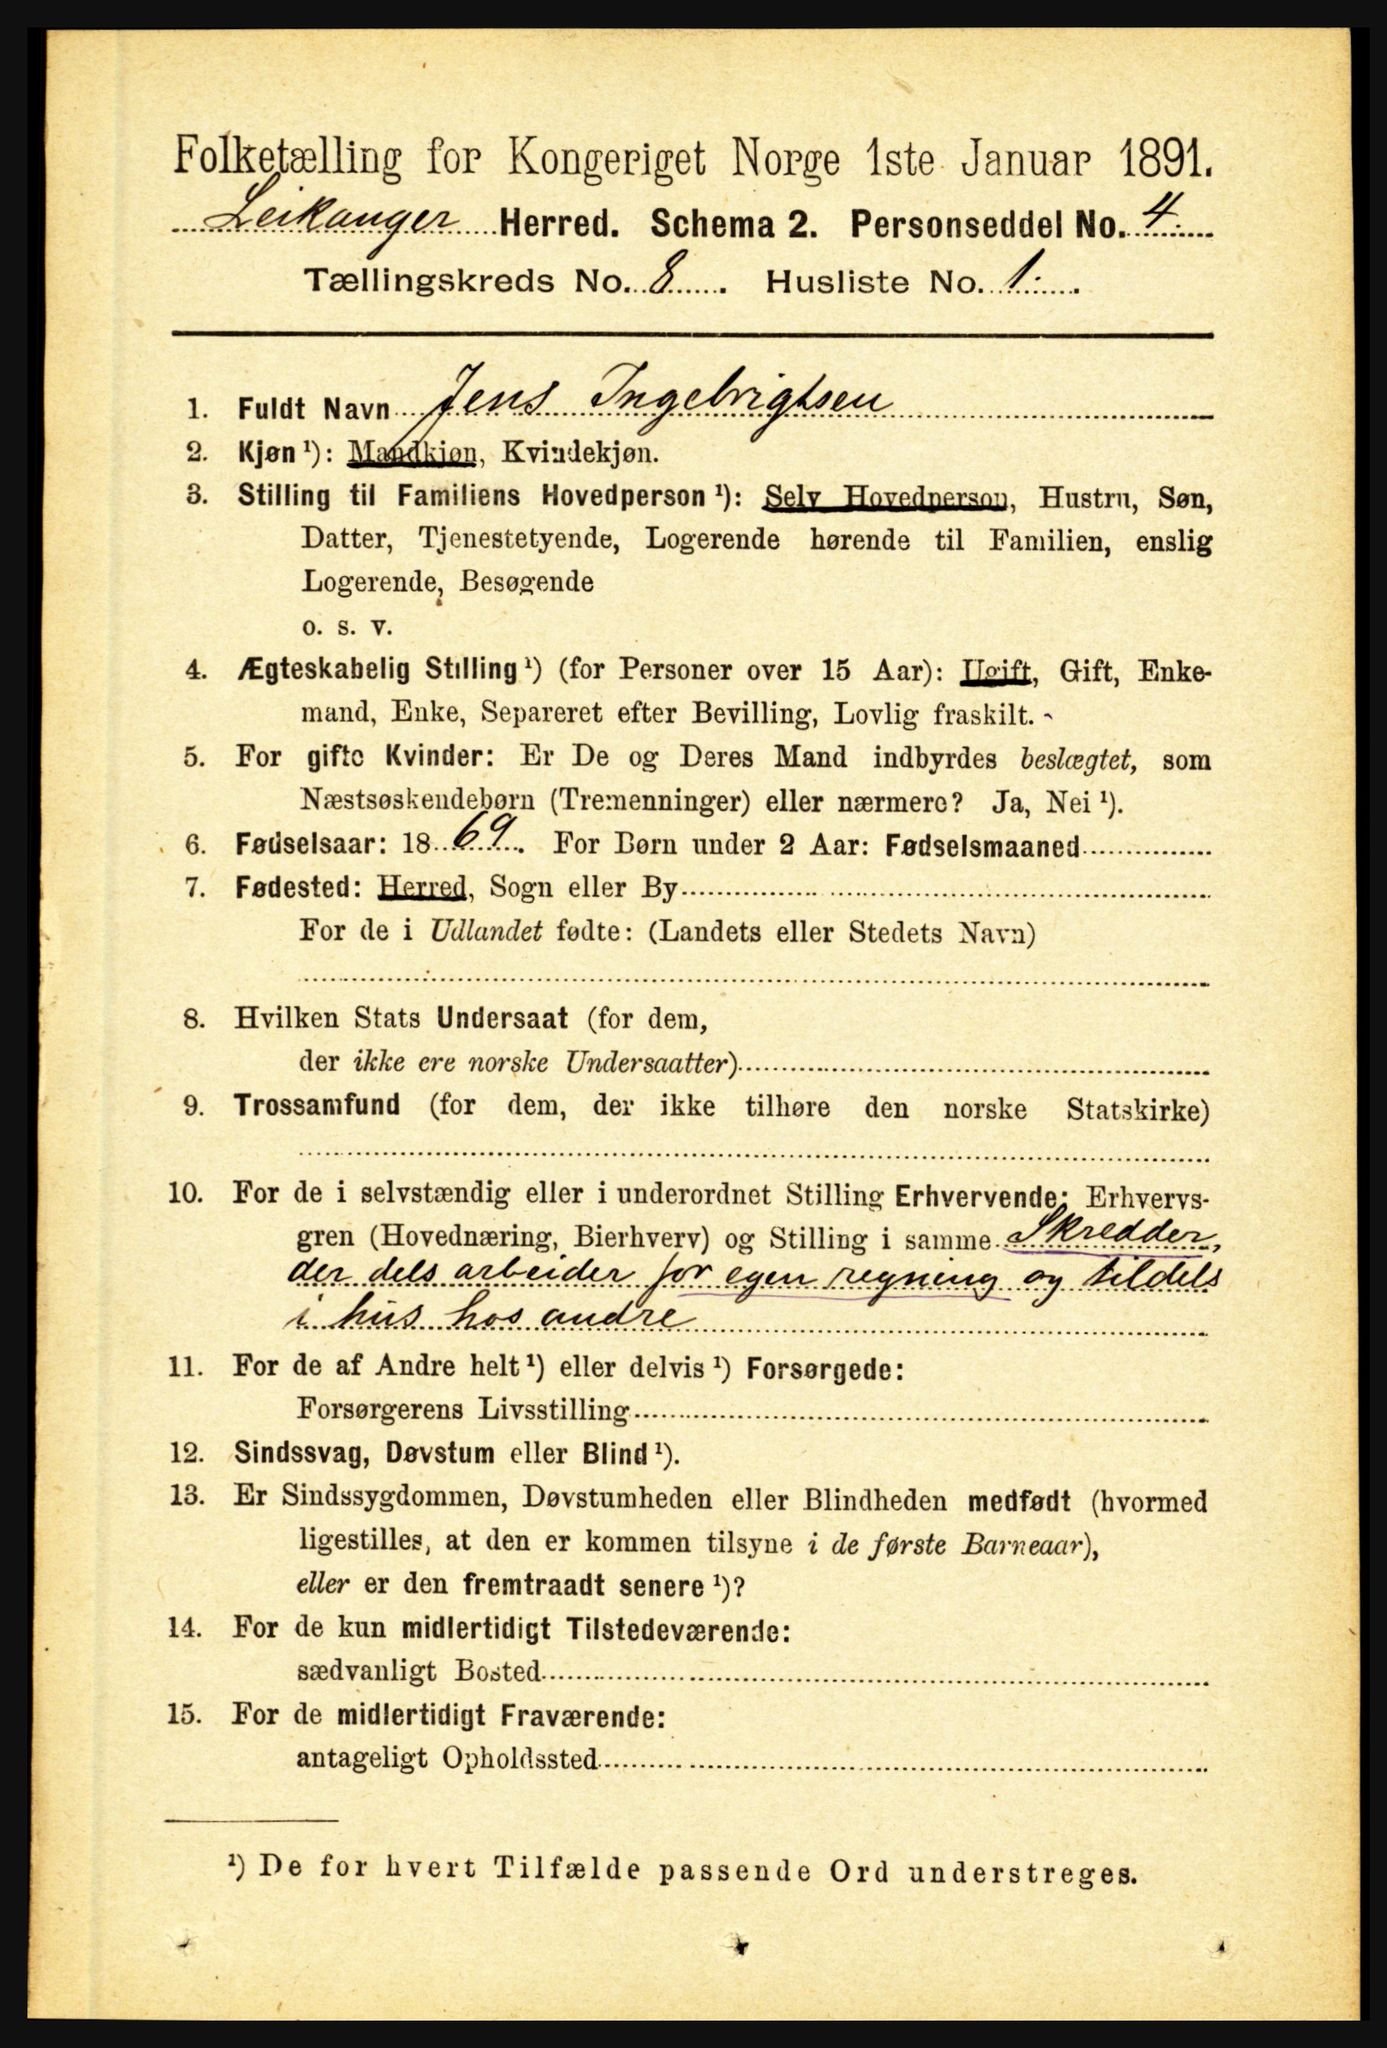 Folketælling for Kongeriget Norge 1ste Januar 1891.
Leikanger Herred. Schema 2. Personseddel No. 4.
Tællingskreds No. 8. Husliste No. 1.
1. Fuldt Navn Jens Ingebrigtsen
2. Kjøn¹): Mandkjøn, Kvindekjøn.
3. Stilling til Familiens Hovedperson¹): Selv Hovedperson, Hustru, Søn,
Datter, Tjenestetyende, Logerende hørende til Familien, enslig
Logerende, Besøgende
o. s. v.
4. Ægteskabelig Stilling¹) (for Personer over 15 Aar): Ugift, Gift, Enke-
mand, Enke, Separeret efter Bevilling, Lovlig fraskilt.
5. For gifte Kvinder: Er De og Deres Mand indbyrdes beslægtet, som
Næstsøskendebørn (Tremenninger) eller nærmere? Ja, Nei¹).
6. Fødselsaar: 1869. For Børn under 2 Aar: Fødselsmaaned
7. Fødested: Herred, Sogn eller By
For de i Udlandet fødte: (Landets eller Stedets Navn)
8. Hvilken Stats Undersaat (for dem,
der ikke ere norske Undersaatter)
9. Trossamfund (for dem, der ikke tilhøre den norske Statskirke)
10. For de i selvstændig eller i underordnet Stilling Erhvervende: Erhvervs-
gren (Hovednæring, Bierhverv) og Stilling i samme Skredder,
der dels arbeider for egen regning og tildels
i hus hos andre
11. For de af Andre helt¹) eller delvis¹) Forsørgede:
Forsørgerens Livsstilling
12. Sindssvag, Døvstum eller Blind¹).
13. Er Sindssygdommen, Døvstumheden eller Blindheden medfødt (hvormed
ligestilles, at den er kommen tilsyne i de første Barneaar),
eller er den fremtraadt senere¹)?
14. For de kun midlertidigt Tilstedeværende:
sædvanligt Bosted
15. For de midlertidigt Fraværende:
antageligt Opholdssted
¹) De for hvert Tilfælde passende Ord understreges.